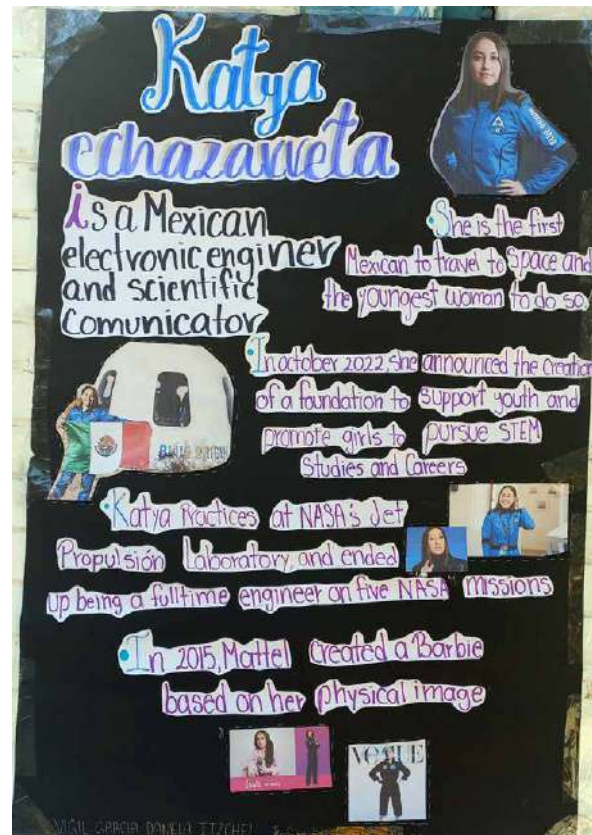 Katya
echazavveta
is a Mexican
electronic enginer
and scientific
comunicator
She is the first
Mexican to travel to Space and
the youngest woman to do so.
In october 2022, she announced the Creation
of a foundation to support youth and
promote girls to pursue STEM
Studies and Careers
BLUE ORIGIN
Katya Practices at NASA's Jet
Propulsión Laboratory, and ended
up being a fulltime engineer on five NASA missions
In 2015, Mattel created a Barbie
based on her physical image
VOGUE
VIGIL GARCIA DANIELA ITZCHEL